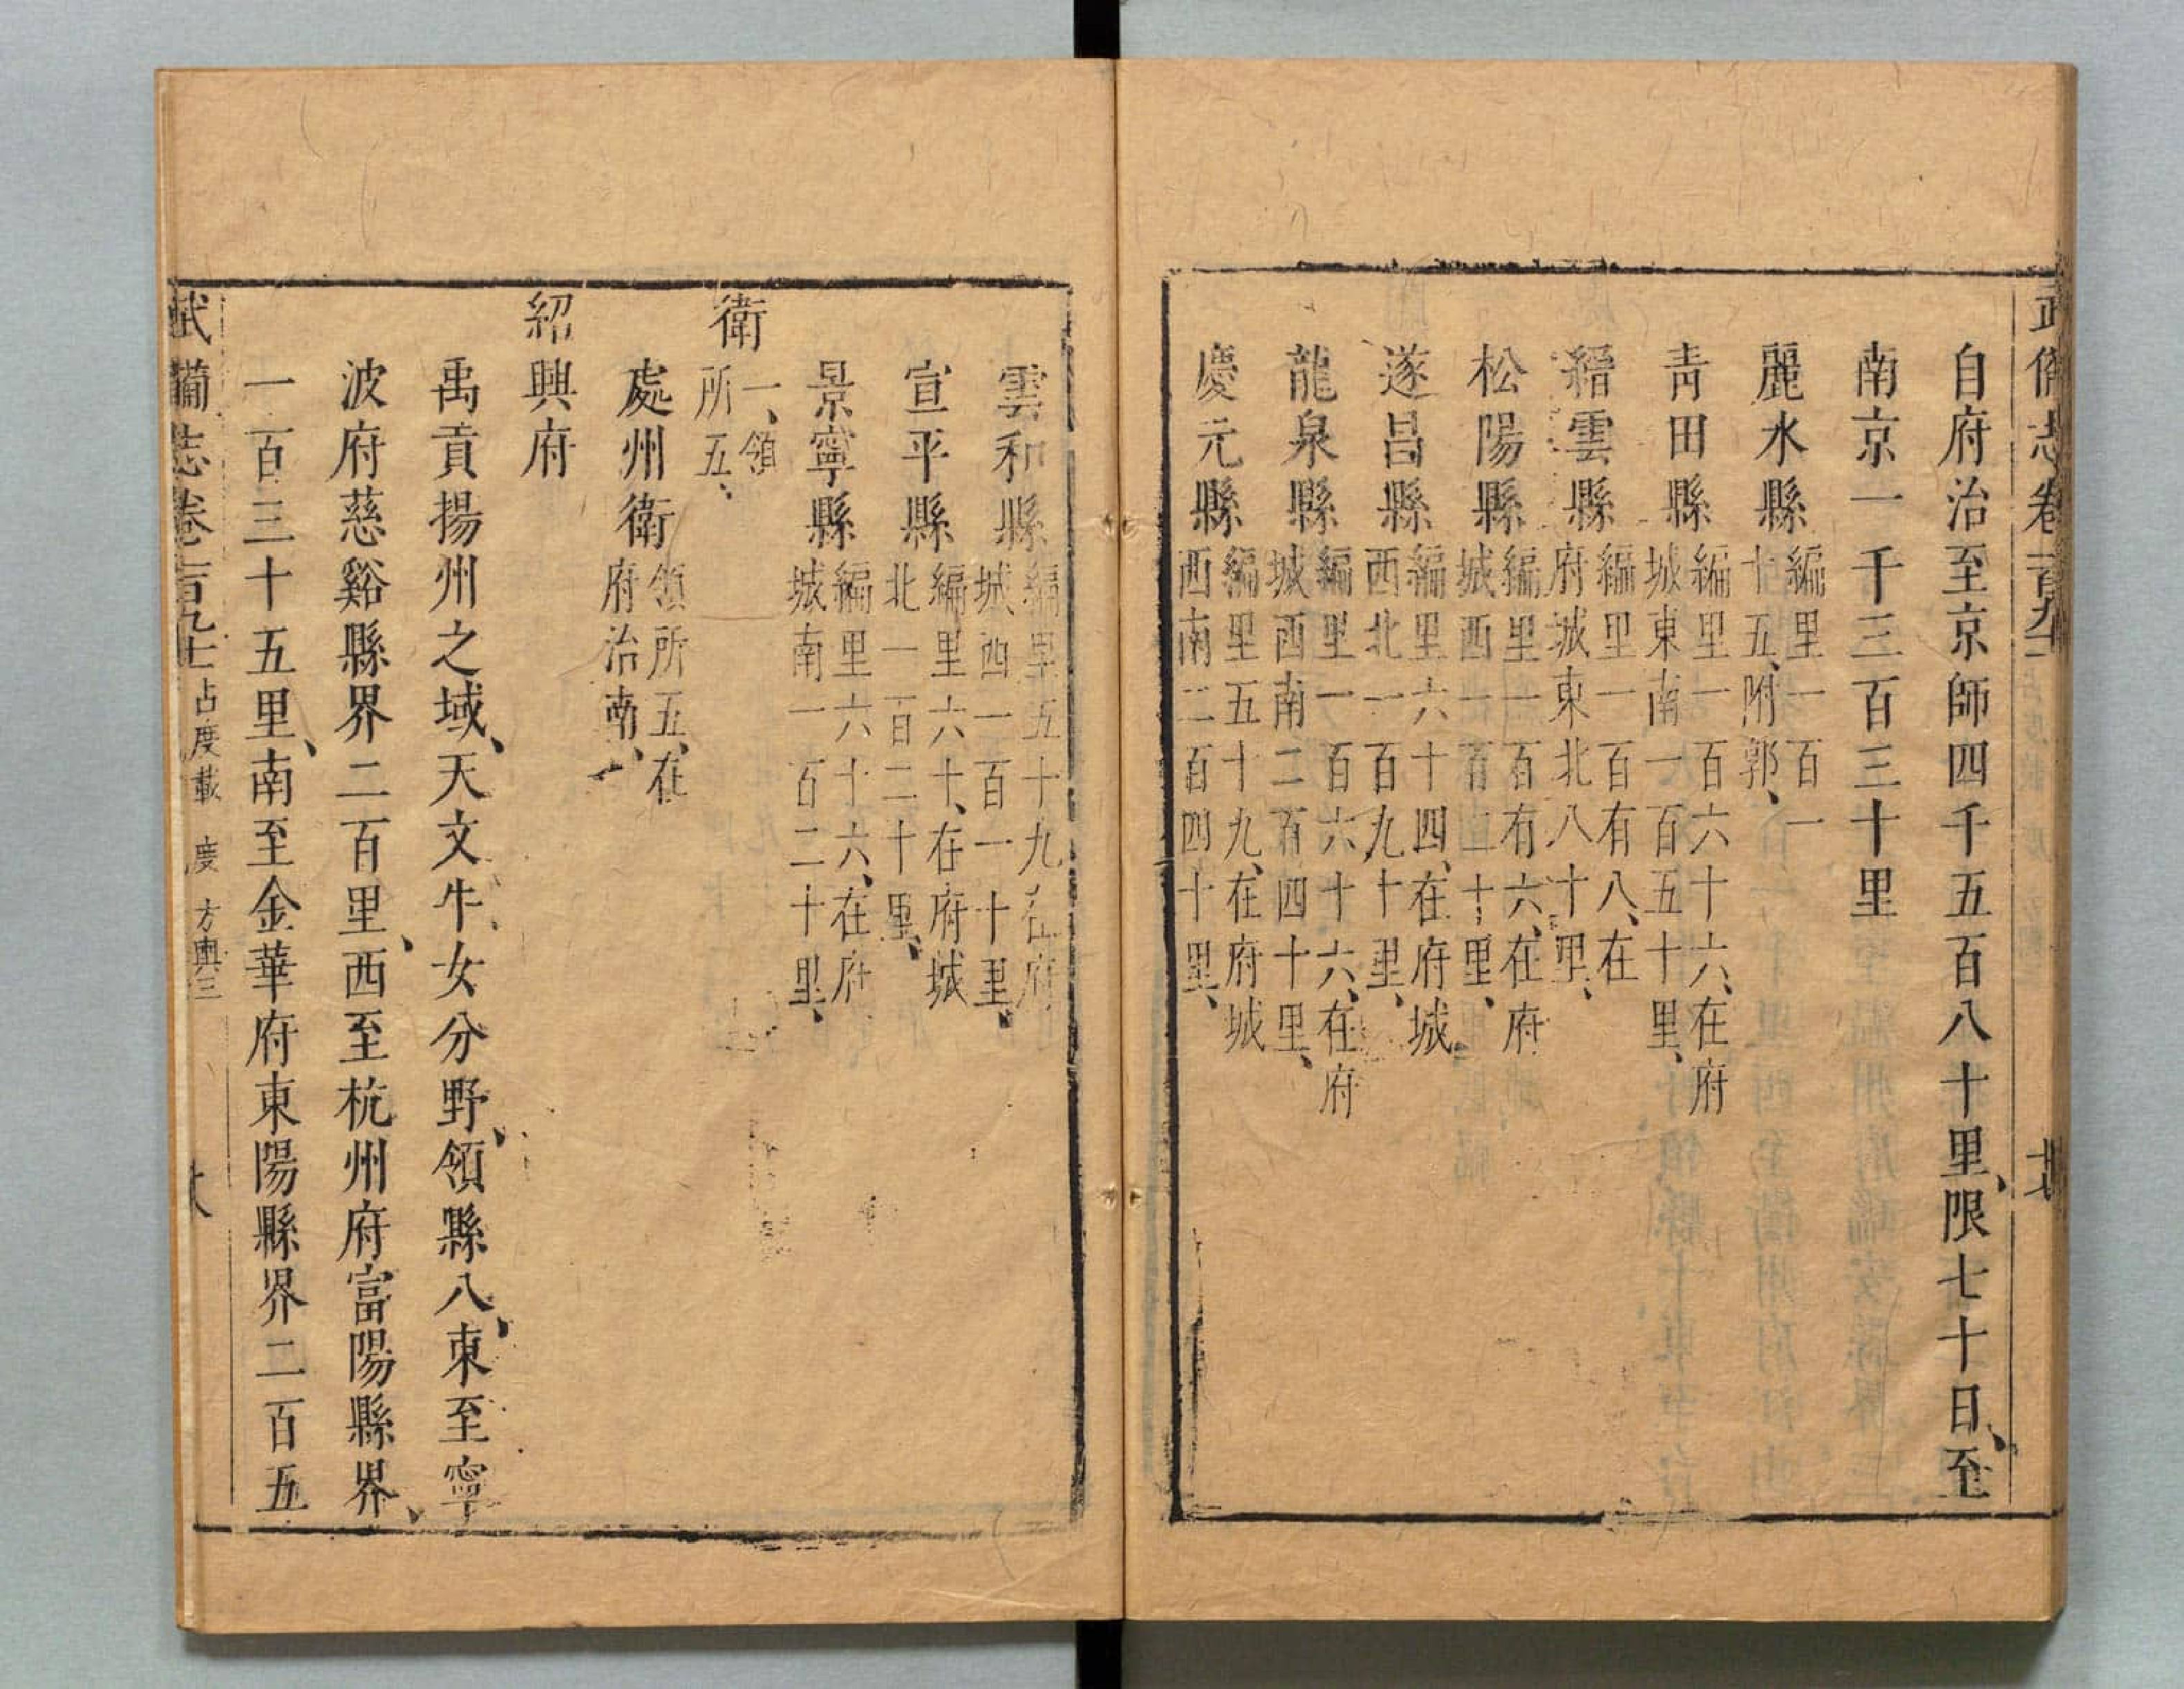 自府治至京師四千五百八十里、限七十日、至
南京一千三百三十里
麗水縣編里一百一十五、附郭、
青田縣編里一百六十六、在府城東南一百五十里、
縉雲縣編里一百有八、在府城東北八十里、
松陽縣編里一百有六、在府城西一百二十里、
遂昌縣編里六十四、在府城西北一百九十里、
龍泉縣編里一百六十六、在府城西南二百四十里、
慶元縣編里五十九、在府城西南二百四十里、
雲和縣編里五十九在府城西一百一十里、
宣平縣編里六十、在府城北一百二十里、
景寧縣編里六十六、在府城南一百二十里、
衛一、領所五、
處州衛領所五、在府治南、
紹興府
禹貢揚州之域、天文牛、女分野、領縣八、東至寧
波府慈谿縣界二百里、西至杭州府富陽縣界、
一百三十五里、南至金華府東陽縣界二百五
武備志卷二百九十 占度載 度 方輿三